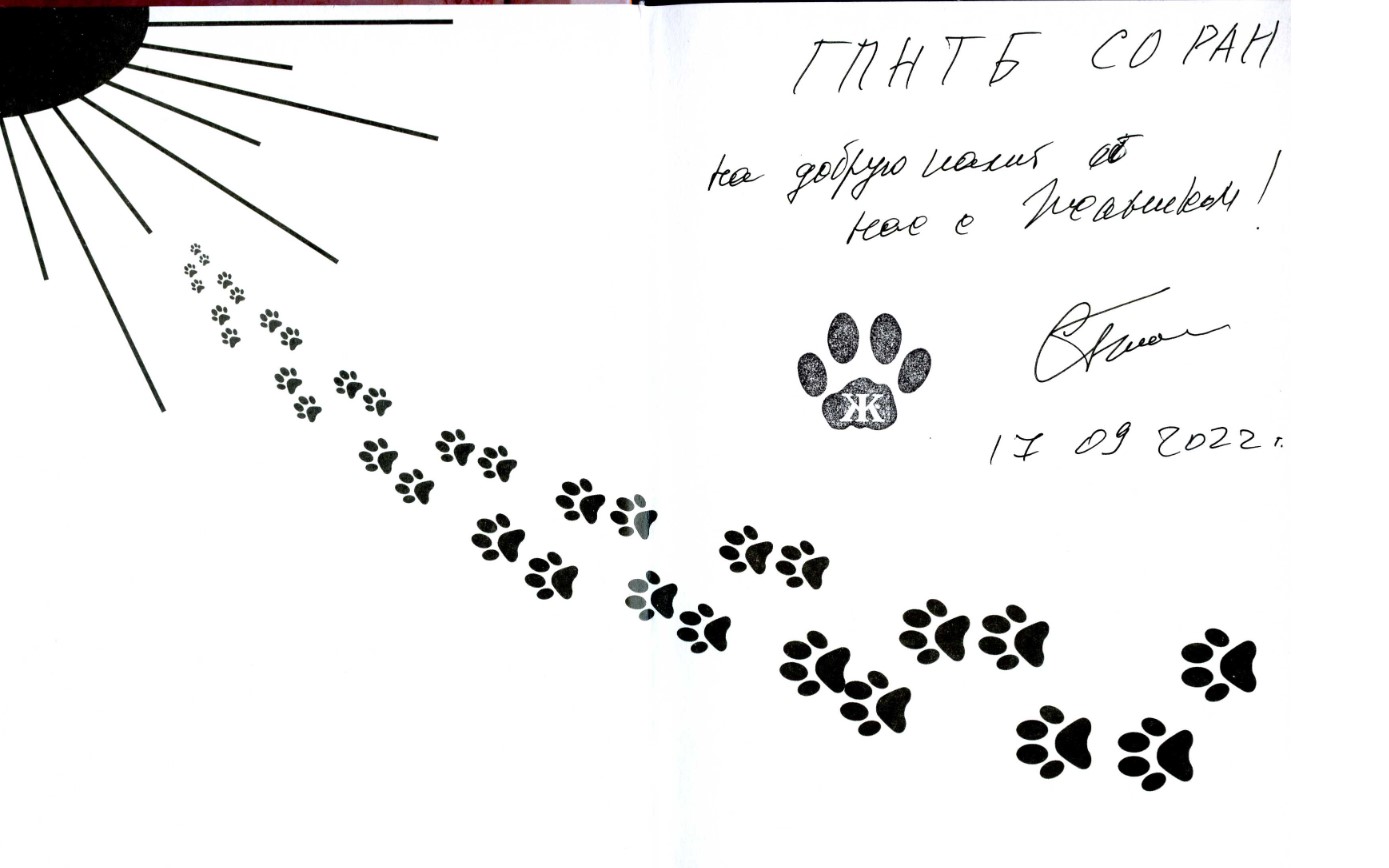 ГПНТБ СО РАН
на добрую память от
нас с Жеавиком!
Ж
17 09 2022 г.